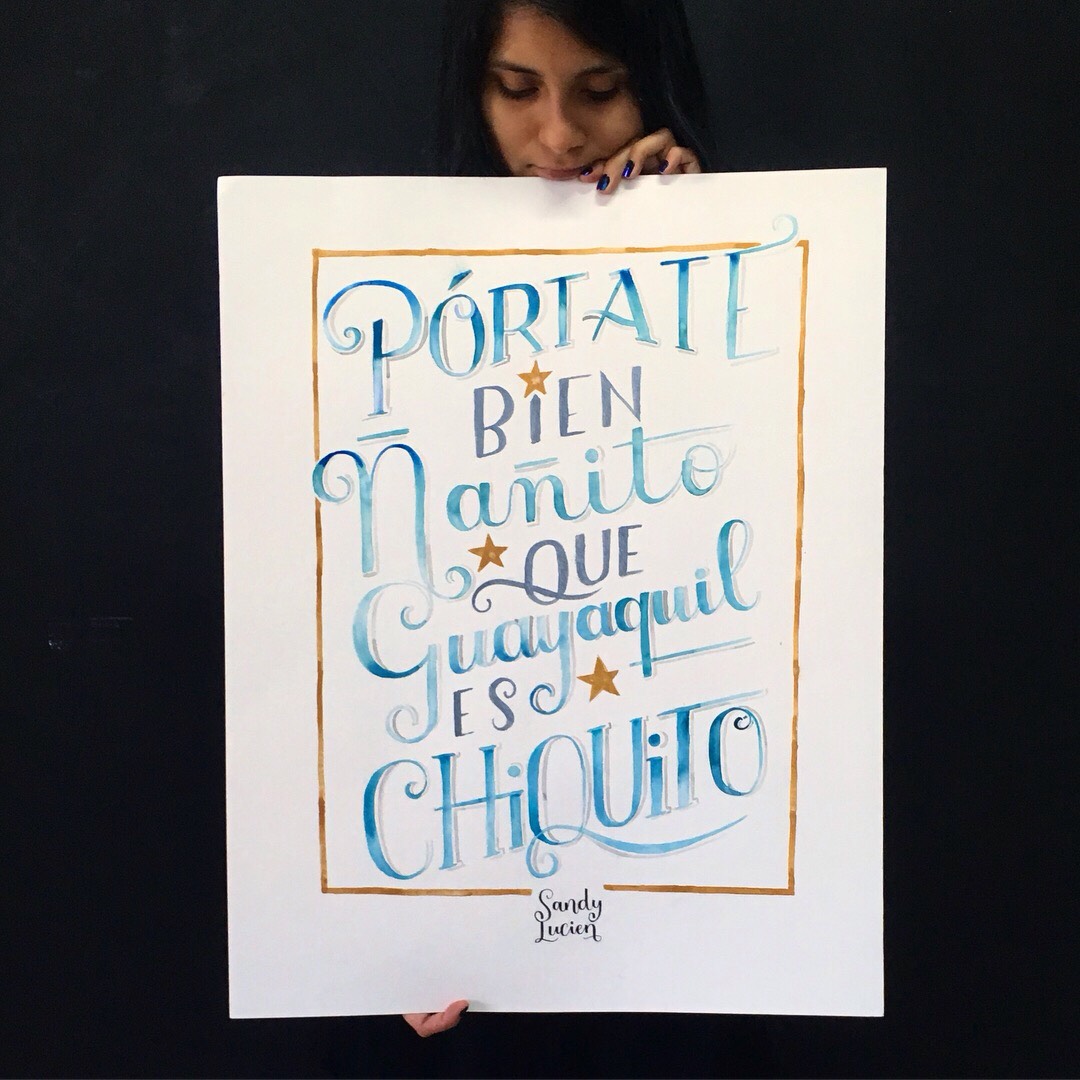 PÓRTATE
BiEN
Ñañito
QUE
Guayaquil
ES
CHiQUiTO
Sandy
Lucien